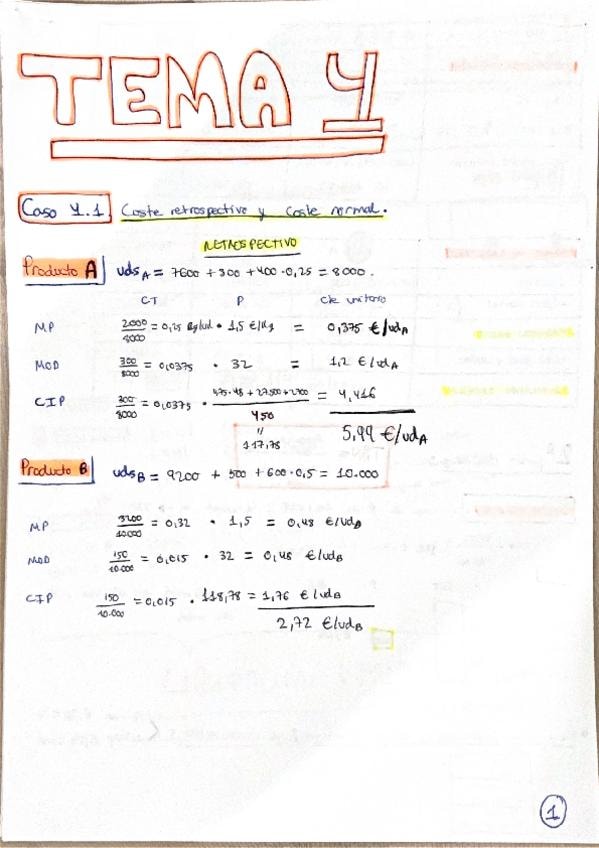 TEMA 4
Caso 4.1. Coste retrospectivo y coste normal.
RETROSPECTIVO
Producto A uds A = 7600 + 300 + 400 · 0,25 = 8000.
CT P Cte unitario
MP 2000/8000 = 0,25 Kg/ud · 1,5 €/Kg = 0,375 €/ud A
MOD 300/8000 = 0,0375 · 32 = 1,2 €/ud A
CIP 300/8000 = 0,0375 · /450 = 4,416
"
117,78
5,99 €/ud A
Producto B uds B = 9200 + 500 + 600 · 0,5 = 10.000
MP 3200/10.000 = 0,32 · 1,5 = 0,48 €/ud B
MOD 150/10.000 = 0,015 · 32 = 0,48 €/ud B
CIP 150/10.000 = 0,015 · 118,78 = 1,76 €/ud B
2,72 €/ud B
1